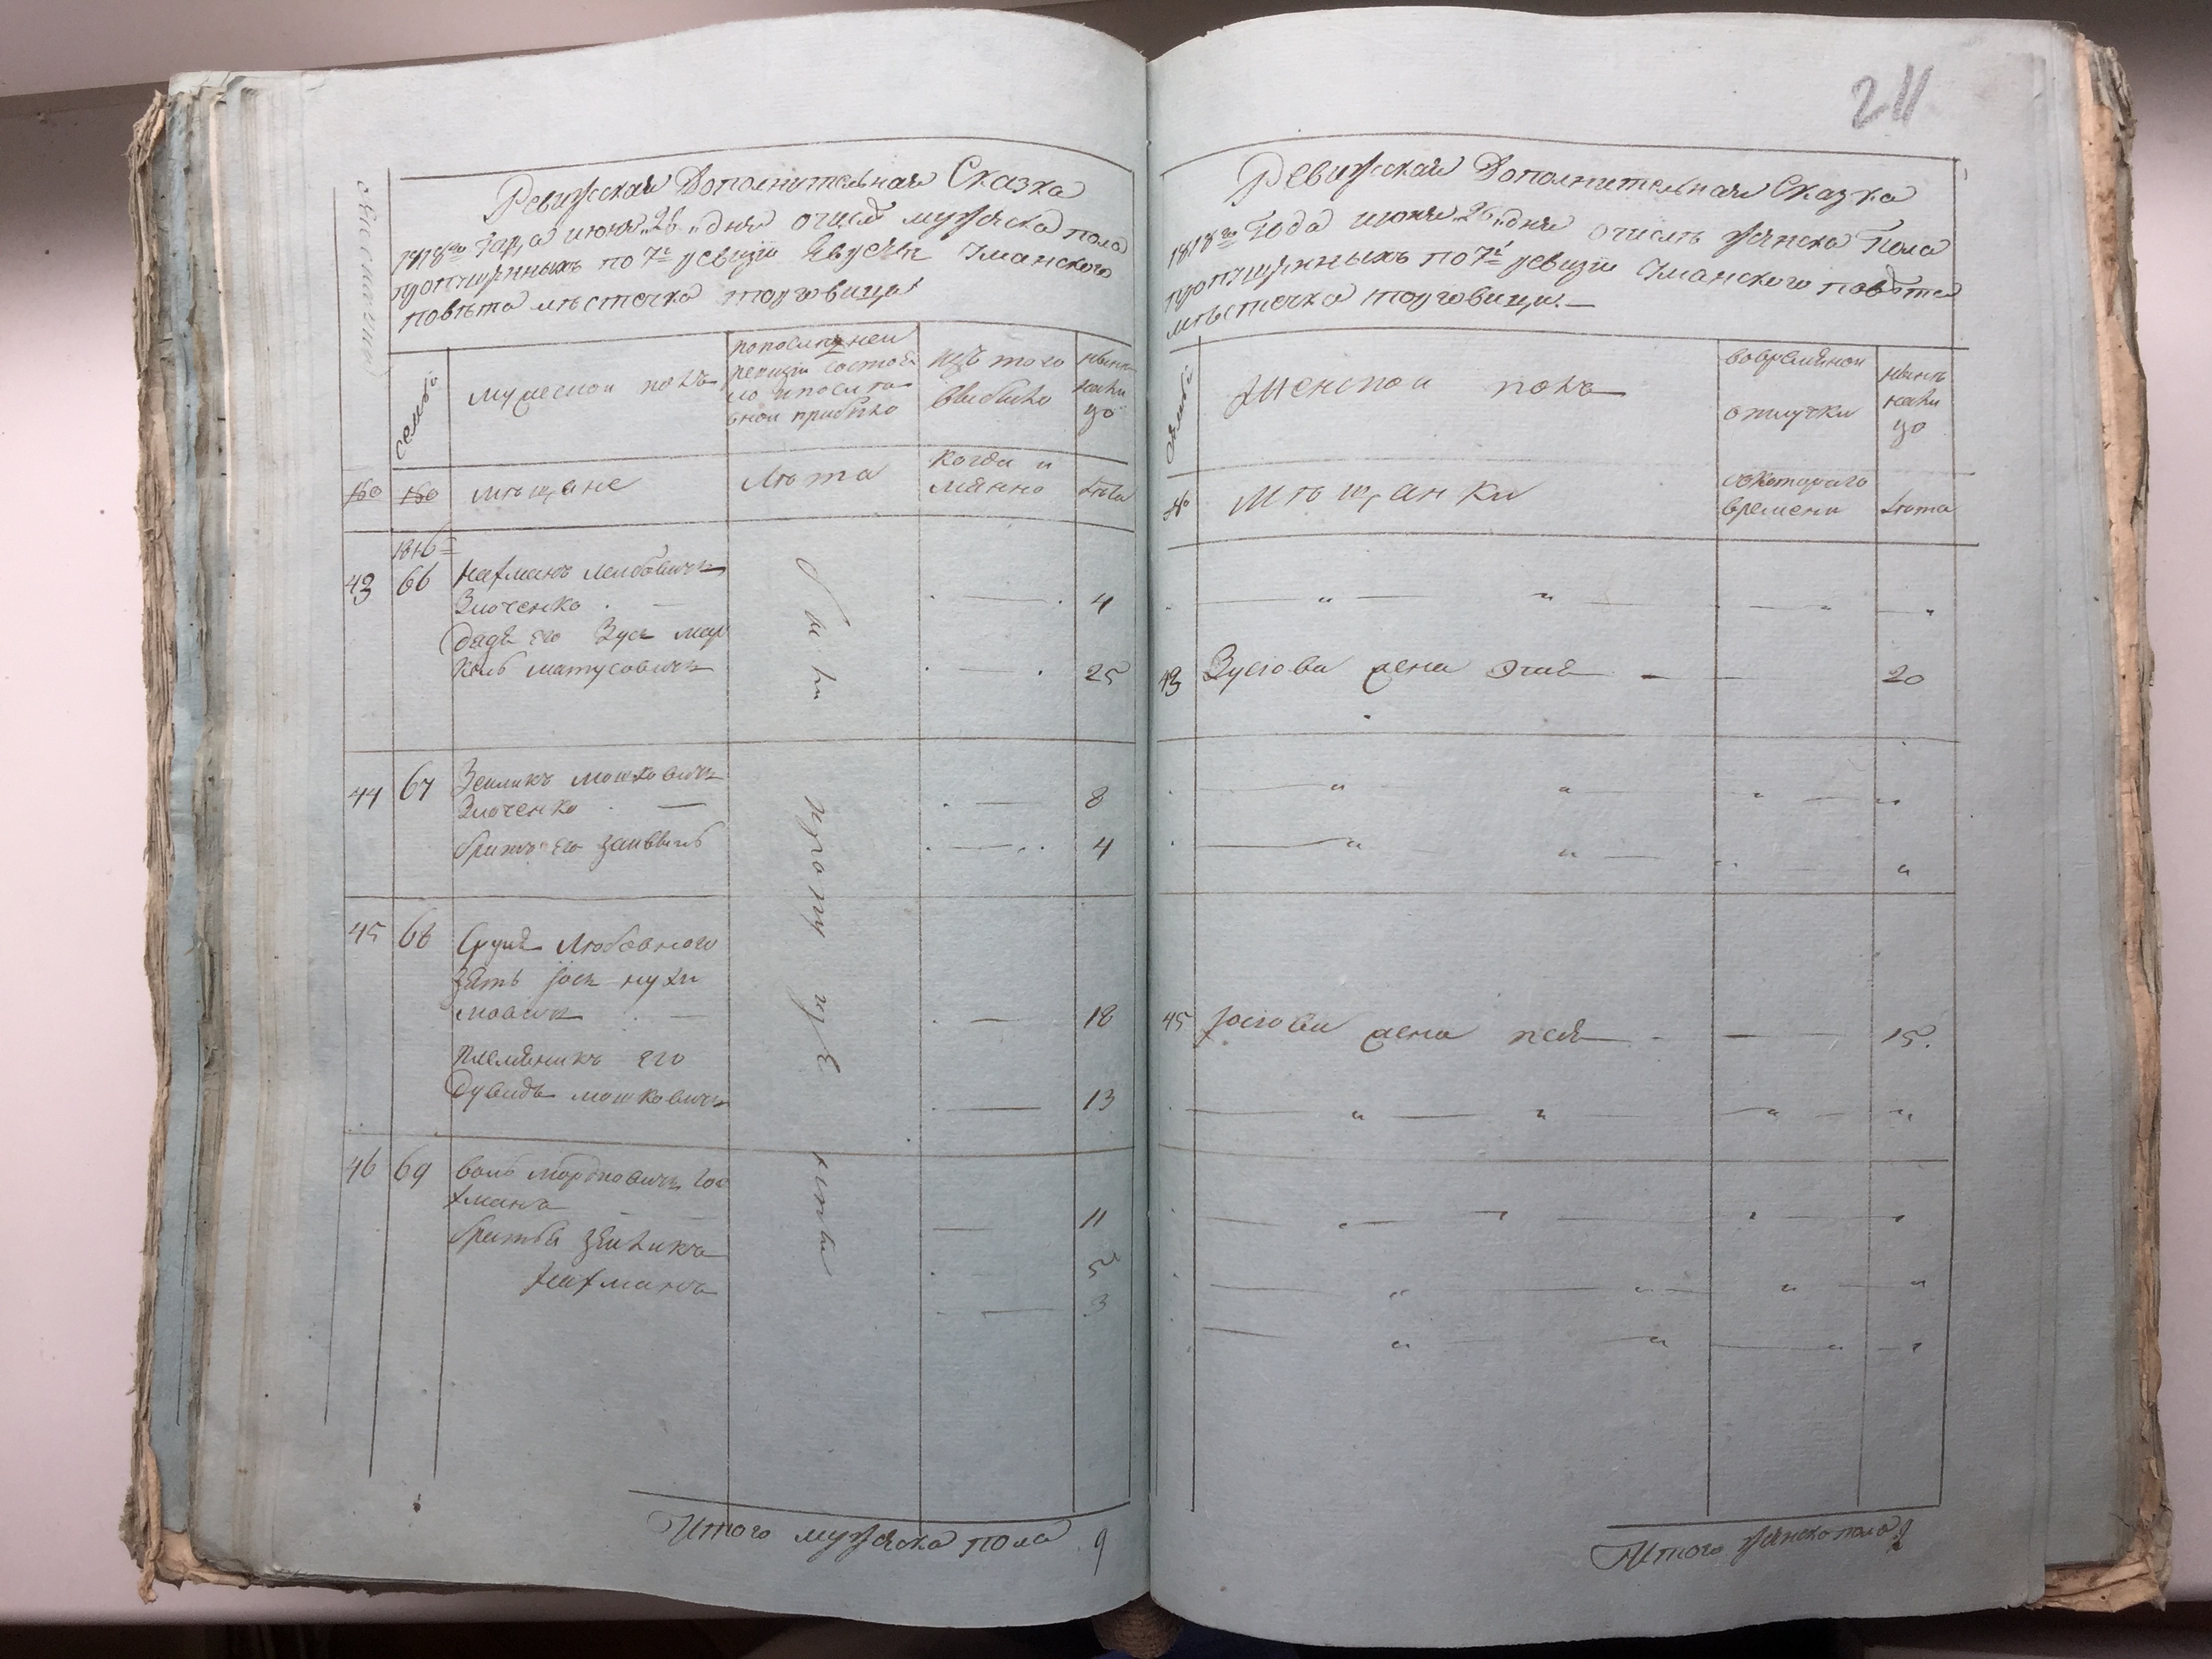 211
Ревизская Дополнительная Сказка
1818го года июня 26 дня о числе мужеска пола
пропущенныхъ по 7й ревизии Евреевъ Уманского
повета местечка торговица
семьи
мужеской полъ
по последней
ревизии состоя
ло и после та
вной прибыло
изъ того
выбыло
ныне
нали
цо
№ № мещане
лета
когда и
мянно
лета
1816
43 66 Нахманъ Лейбовичъ
Злоченко — 4
Дядя его Зусь Мар
коль Матусовичъ — 25
44 67 Зейликъ Мошковичъ
Злоченко — 8
братъ его Зайввель — 4
45 68 Сруля Любовного
зять Йось Нухи
мовичъ — 18
племяникъ его
Дувидъ Мошковичъ — 13
46 69 Воль Мордковичъ Гох
манъ — 11
братья Зейликъ 5
Нахманъ — 3
Итого мужеска пола 9
Ревизская Дополнительная Сказка
1818го года июня 26 дня о числе женска пола
пропущенныхъ по 7й ревизии Уманского повета
местечка торговици. —
семьи
женской полъ
во временной
отлучки
ныне
нали
цо
№ мещанки
с которого
времени
лета
43 Зусева жена — — 20
45 Йосева жена — — 15.
Итого женска пола 2